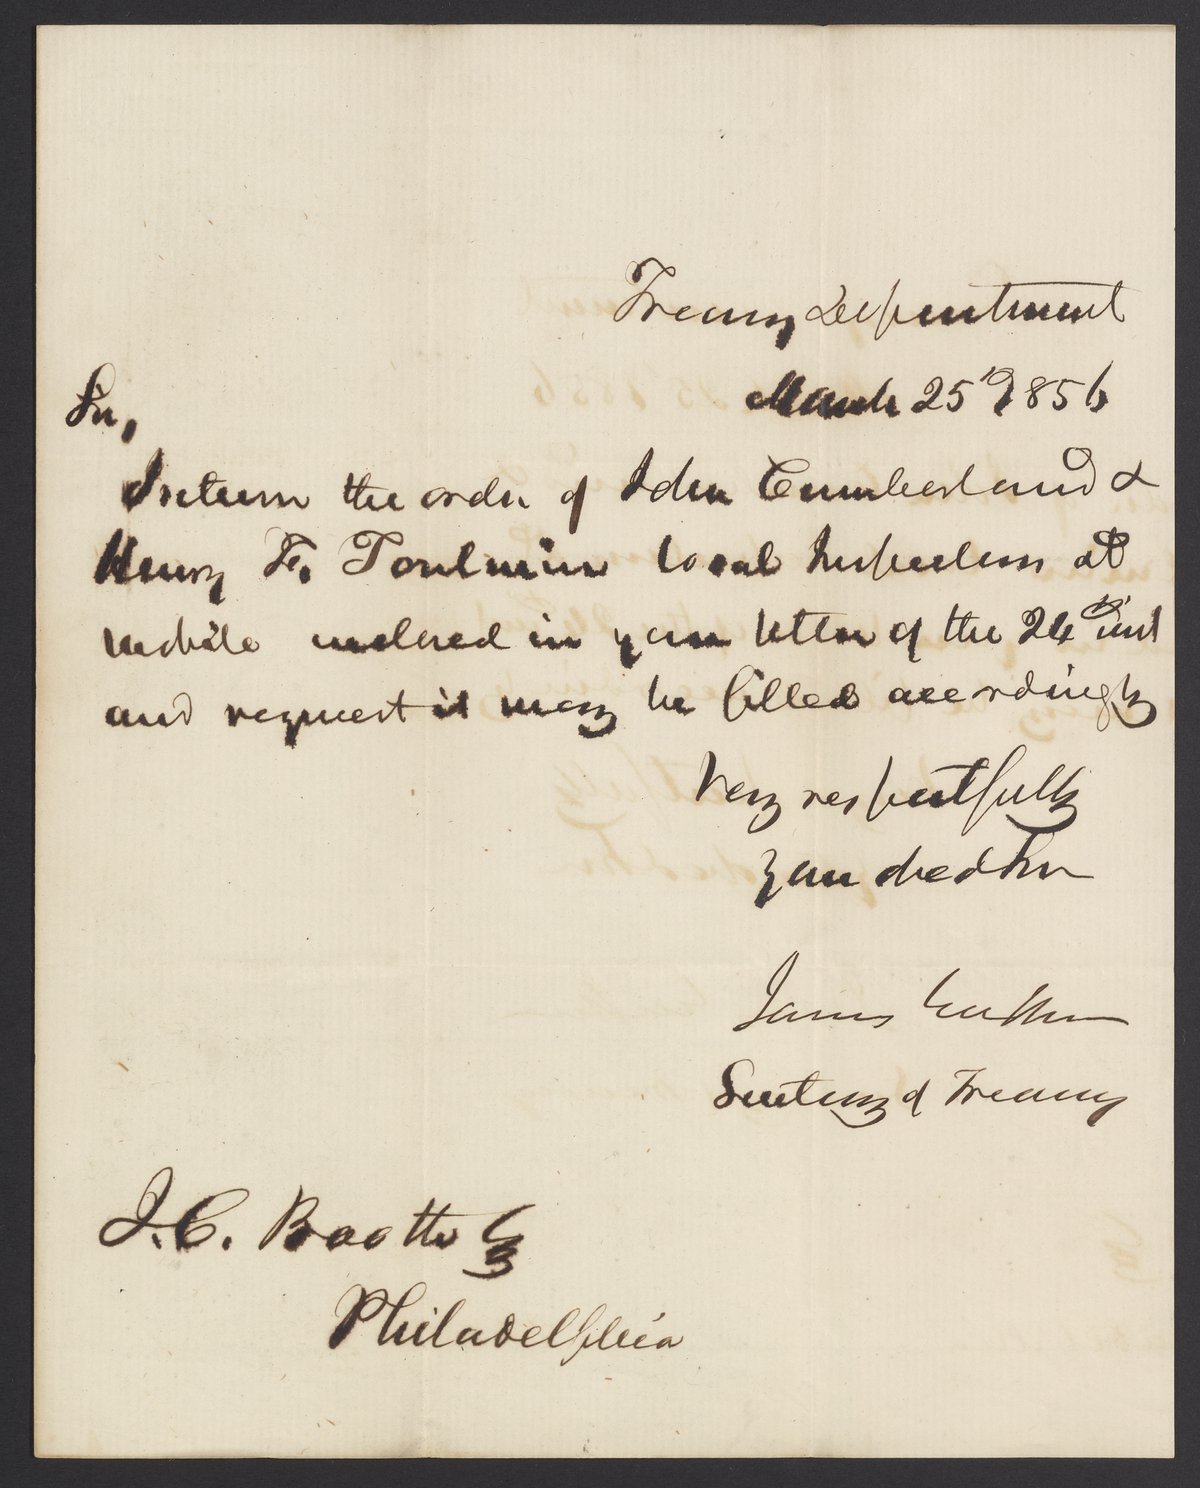 Treasury Department
March 25th 1856
Sir,
I return the order of John Cumberland &
Henry F. Toulmin local Inspectors at
Mobile inclosed in your letter of the 24th inst
and request it may be filled accordingly
Very respectfully
Your obed Svr
James Guthrie
Secretary of Treasury
J. C. Booth Esq
Philadelphia